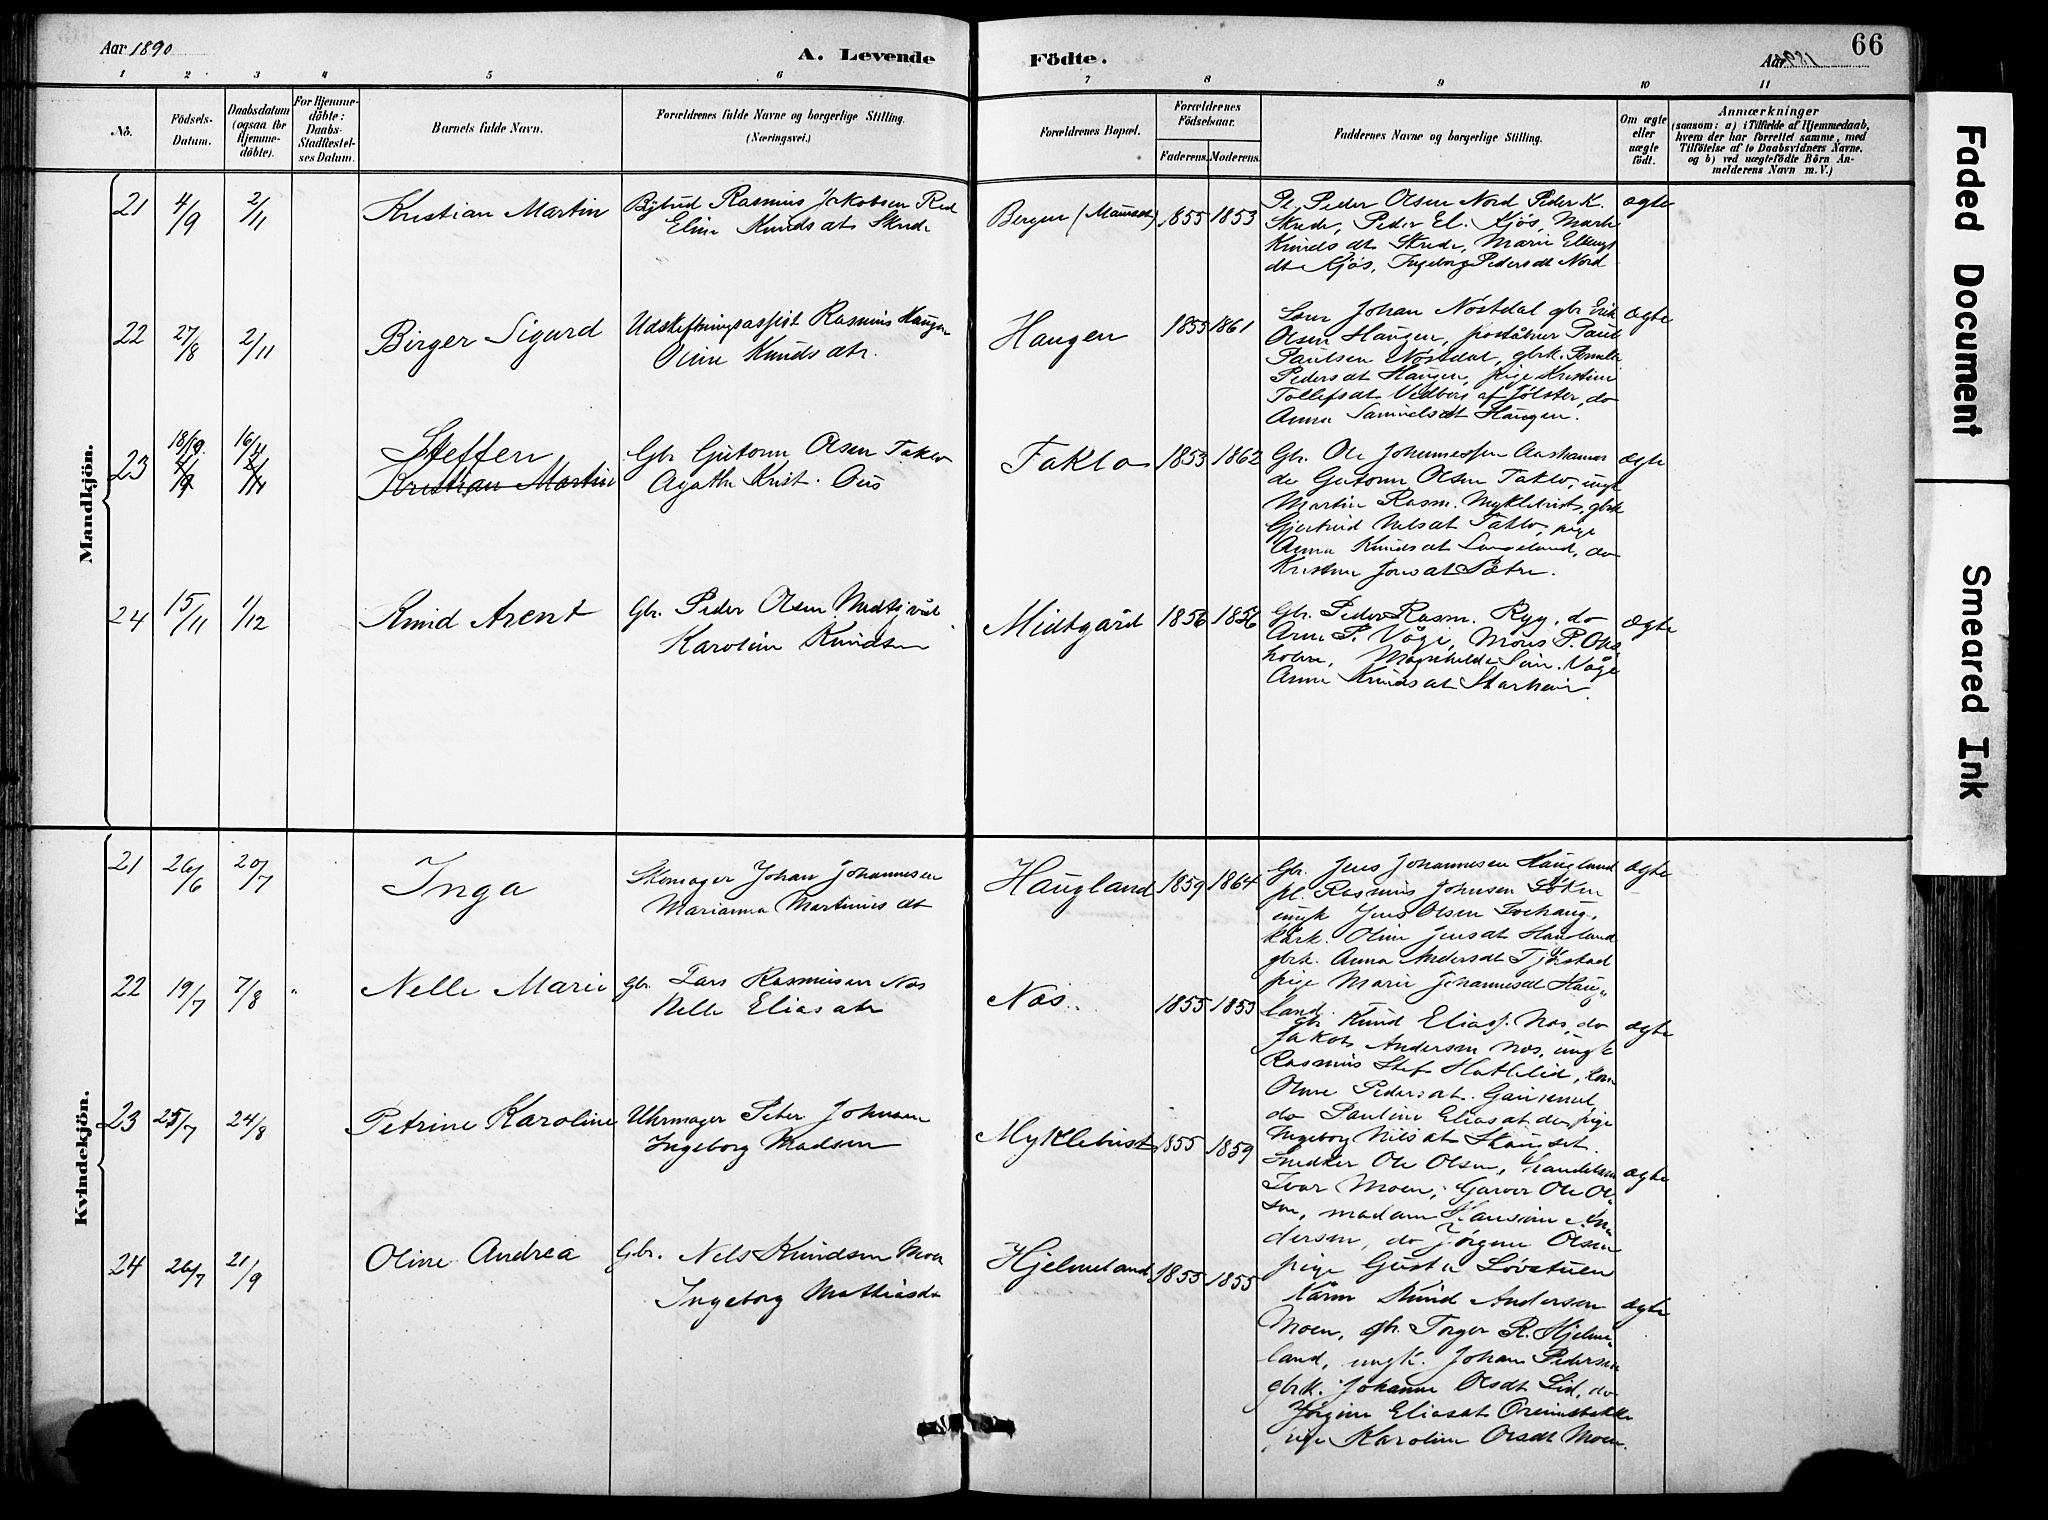 Aar 1890
A. Levende
Födte.
Aar
66
1 2 3 4 5 6 7 8 9 10 11
No.
Födsels-Datum.
Daabsdatum (ogsaa for Hjemme-döbte).
For Hjemme-döbte: Daabs-Stadfæstel-ses Datum.
Barnets fulde Navn.
Forældrenes fulde Navne og borgerlige Stilling.
(Næringsvei.)
Forældrenes Bopæl.
Forældrenes Födselsaar.
Faderens. Moderens.
Faddernes Navne og borgerlige Stilling.
Om ægte eller uægte født.
Anmærkninger
(saasom: a) i Tilfælde af Hjemmedaab,
hvem der har forrettet samme, med
Tilföielse af to Daabsvidners Navne.
og b) ved uægtefödte Börn An-
melderens Navn m. V.)
Mandkjön.
21 4/9 2/11 Kristian Martin
Rasmus Jakobsen
Eline Knudsdt Skrede
Bergen 1855 1853
Peder Olsen Nord Peder K.
Skrede, Peder El. Kjös, Marte
Knudsdt Skrede, Marie
dt Kjös, Ingeborg Pedersdt Nord
ægte
22 27/8 2/11 Birger Sigurd
Udskiftningsassist Rasmus Haugen
Oline Knudsdtr.
Haugen 1855 1861
Johan Nöstdal gbr Erik
Olsen Haugen, Paul
Paulsen Nöstdal, gbrk.
Pedersdt Haugen, pige Kristine
Tollefsdt af Jölster, do
Anna Samuelsdt Haugen.
ægte
23 18/9. 16/11 Steffen
4/9 2/11 Kristian Martin
Gbr Guttorm Olsen Taklo
Agathe Krist. Ous
Taklo 1853 1862
Gbr. Ole Johannessen
do Guttorm Olsen Taklo, ungk
Martin Rasm. Myklebust, gbrk
Gjertrud Nelsdt Taklo, pige
Anna Knudsdt do
Kristine Jonsdt Sætre.
ægte
24 15/11 1/12 Knud Arent
Gbr. Peder Olsen
Karoline Knudsen
Midtgård 1856 1856
Gbr. Peder Rasm. Ryg, do
Arne P. Våge, Mons P.
Våge
Anne Knudsdt
ægte
Kvindekjön.
21 26/6 20/7 Inga
Skomager Johan Johannesen
Marianna Martinusdt
Haugland 1859 1864
Gbr. Jens Johannesen Haugland
pl. Rasmus Johnsen
ungk Jens Olsen
Kårk. Oline Jensdt Haugland
gbrk. Anna Andersdt
pige Marie Johannesdt Haug-
land.
ægte
22 19/7 7/8 " Nelle Marie
gbr. Lars Rasmusen Nos
Nelle Eliasdtr
Nos. 1855 1853
gbr Knud Eliass. Nos, do
Jakob Andersen Nos, ungk
Rasmus Stef Hatlelid,
Oline Pedersdt.
do Pauline Eliasdt do, pige
Ingeborg Nilsdt
ægte
23 25/7 24/8 Petrine Karoline
Uhrmager Peter Johnsen
Ingeborg Madsen
Myklebust 1855 1859
Snedker Ole Olsen,
Ivar Moen, Garver Ole Ol-
sen, madam Hansine An-
dersen, do Jörgine Olsen
pige Gusta Lövstuen
ægte
24 26/7 21/9 Oline Andrea
Gbr. Nels Knudsen Moen
Ingeborg Mathiasdt
Hjelmeland 1855 1855
Kårm Knud Andersen
Moen, gbr. Torger R. Hjelme-
land, ungk. Johan Pedersen
gbrk. Johanne Olsdt Lid, do
Jörgine Eliasdt
pige Karoline Olsdt Moen.
ægte
Faded Document
Smeared Ink